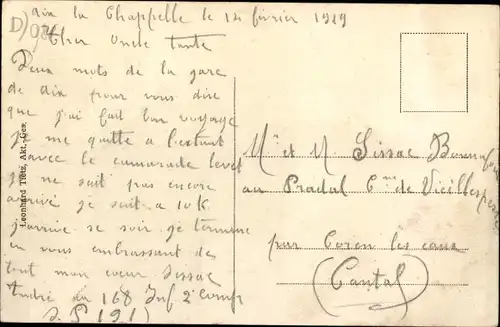 aix la Chappelle le 14 février 1919
Cher Oncle Tante
Deux mots de la gare
de aix pour vous dire
que j'ai fait bon voyage
je me quitte a l'extant
avec le camarade levet
je ne suit pas encore
arrivé je suit a 10 K
j'arrive se soir je termine
en vous embrassant de
tout mon coeur Sissac
André au 168 Inf 2e Comp
S. P 191)
Mr et M. Sissac Bonnafous
au Pradal Cne de Vieillespesse
par Coren les eaux
(Cantal)
Leonhard Tietz, Akt.-Ges.